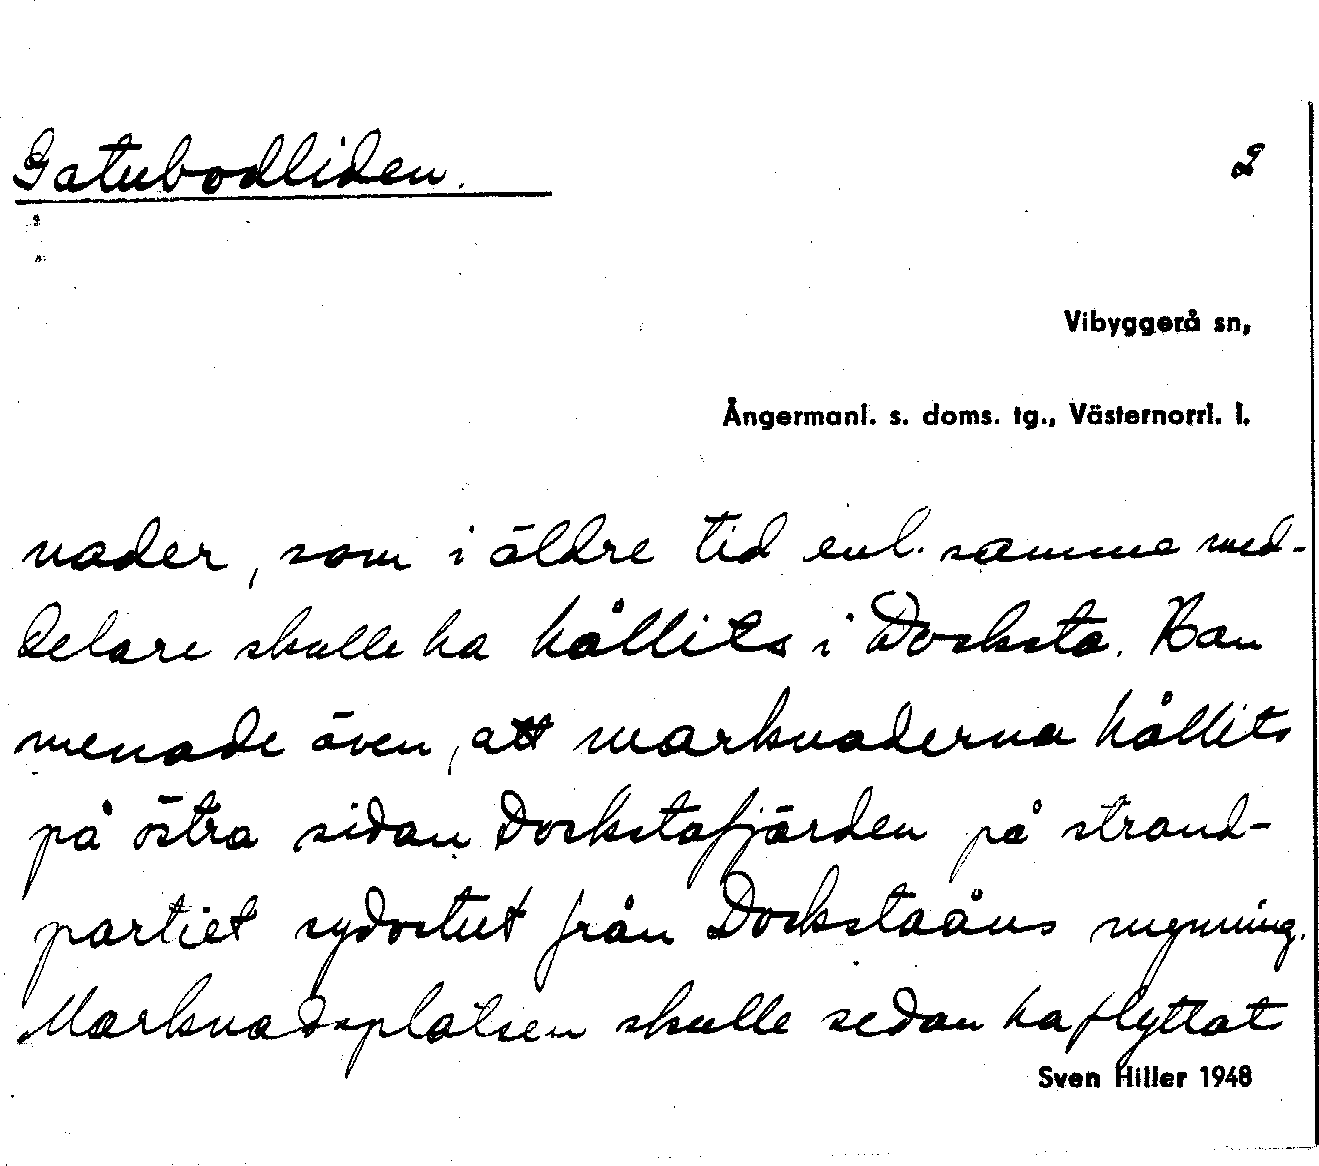 Gatubodliden. 2
Vibyggerå sn,
Ångermanl. s. doms. tg., Västernorrl. l.
nader, som i äldre tid enl. samme med-
delare skulle ha hållits i Docksta. Han
menade även, att marknaderna hållits
på östra sidan Dockstafjärden på strand-
partiet sydostut från Dockstaåns mynning.
Marknadsplatsen skulle sedan ha flyttat
Sven Hiller 1948